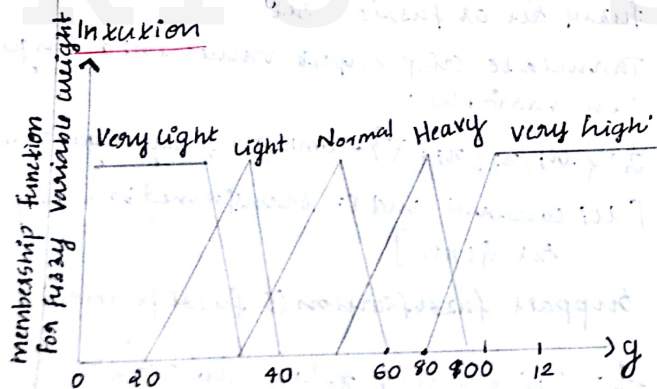 Intution
membership function
for fuzzy variable weight
Very light
light
Normal
Heavy
very high
0 20 40 60 80 100 12
g